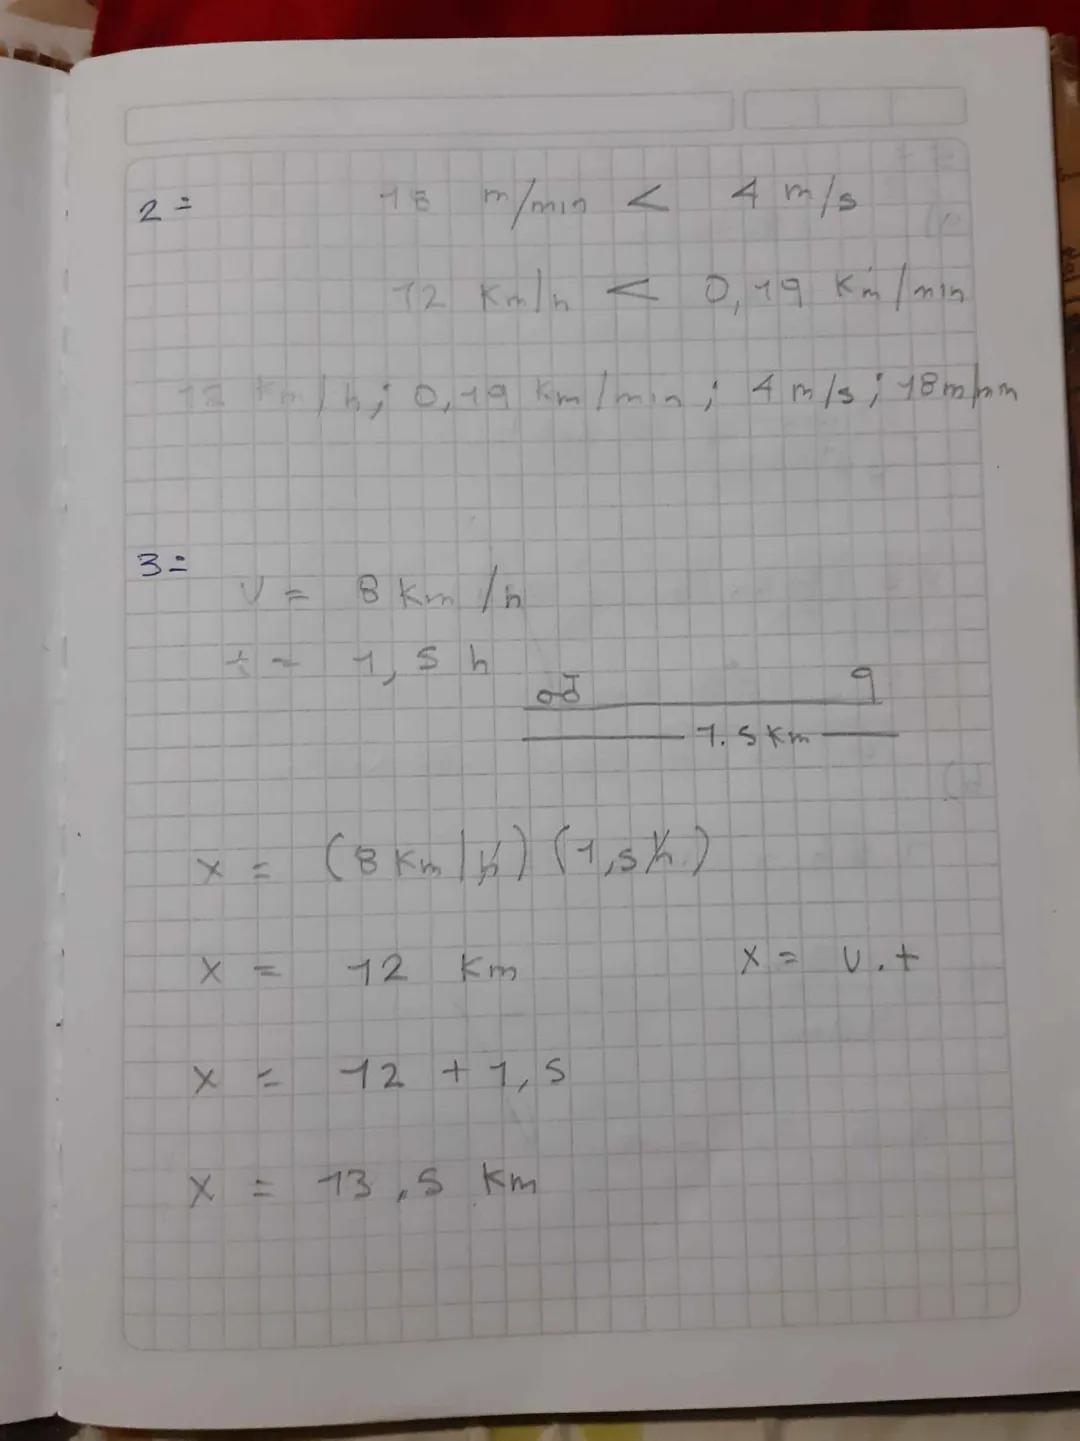 2=
18 m/min < 4 m/s
12 Km/h < 0,19 Km/min
12 Km/h; 0,19 Km/min; 4 m/s; 18m/min
3=
v = 8 Km/h
t = 1,5 h
1.5 Km
x = (8 Km/h) (1,5 h)
x = 12 Km
x = v.t
x = 12 + 1,5
x = 13,5 Km